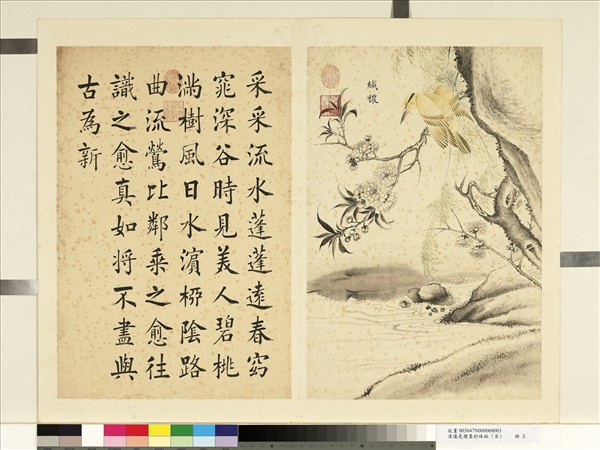 纖穠
采采流水蓬蓬遠春窈
窕深谷時見美人碧桃
滿樹風日水濱栁陰路
曲流鶯比鄰乘之愈往
識之愈真如將不盡與
古為新
故畫 003647N000000003
清潘是稷墨妙珠林（亥） 冊 3